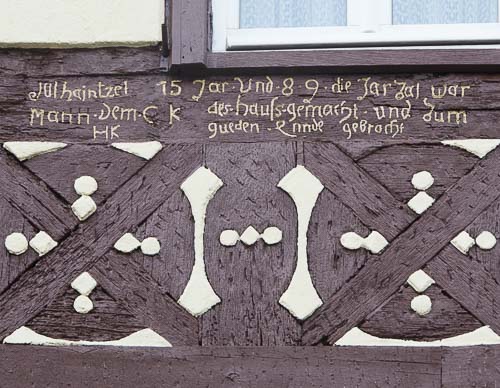 Jül heintzel 15 Jar. Und. 8 9. die Jar Zal war
Mann. Dem. C K des. hauss. gemacht. und zum
HK gueden. Ennde gebracht